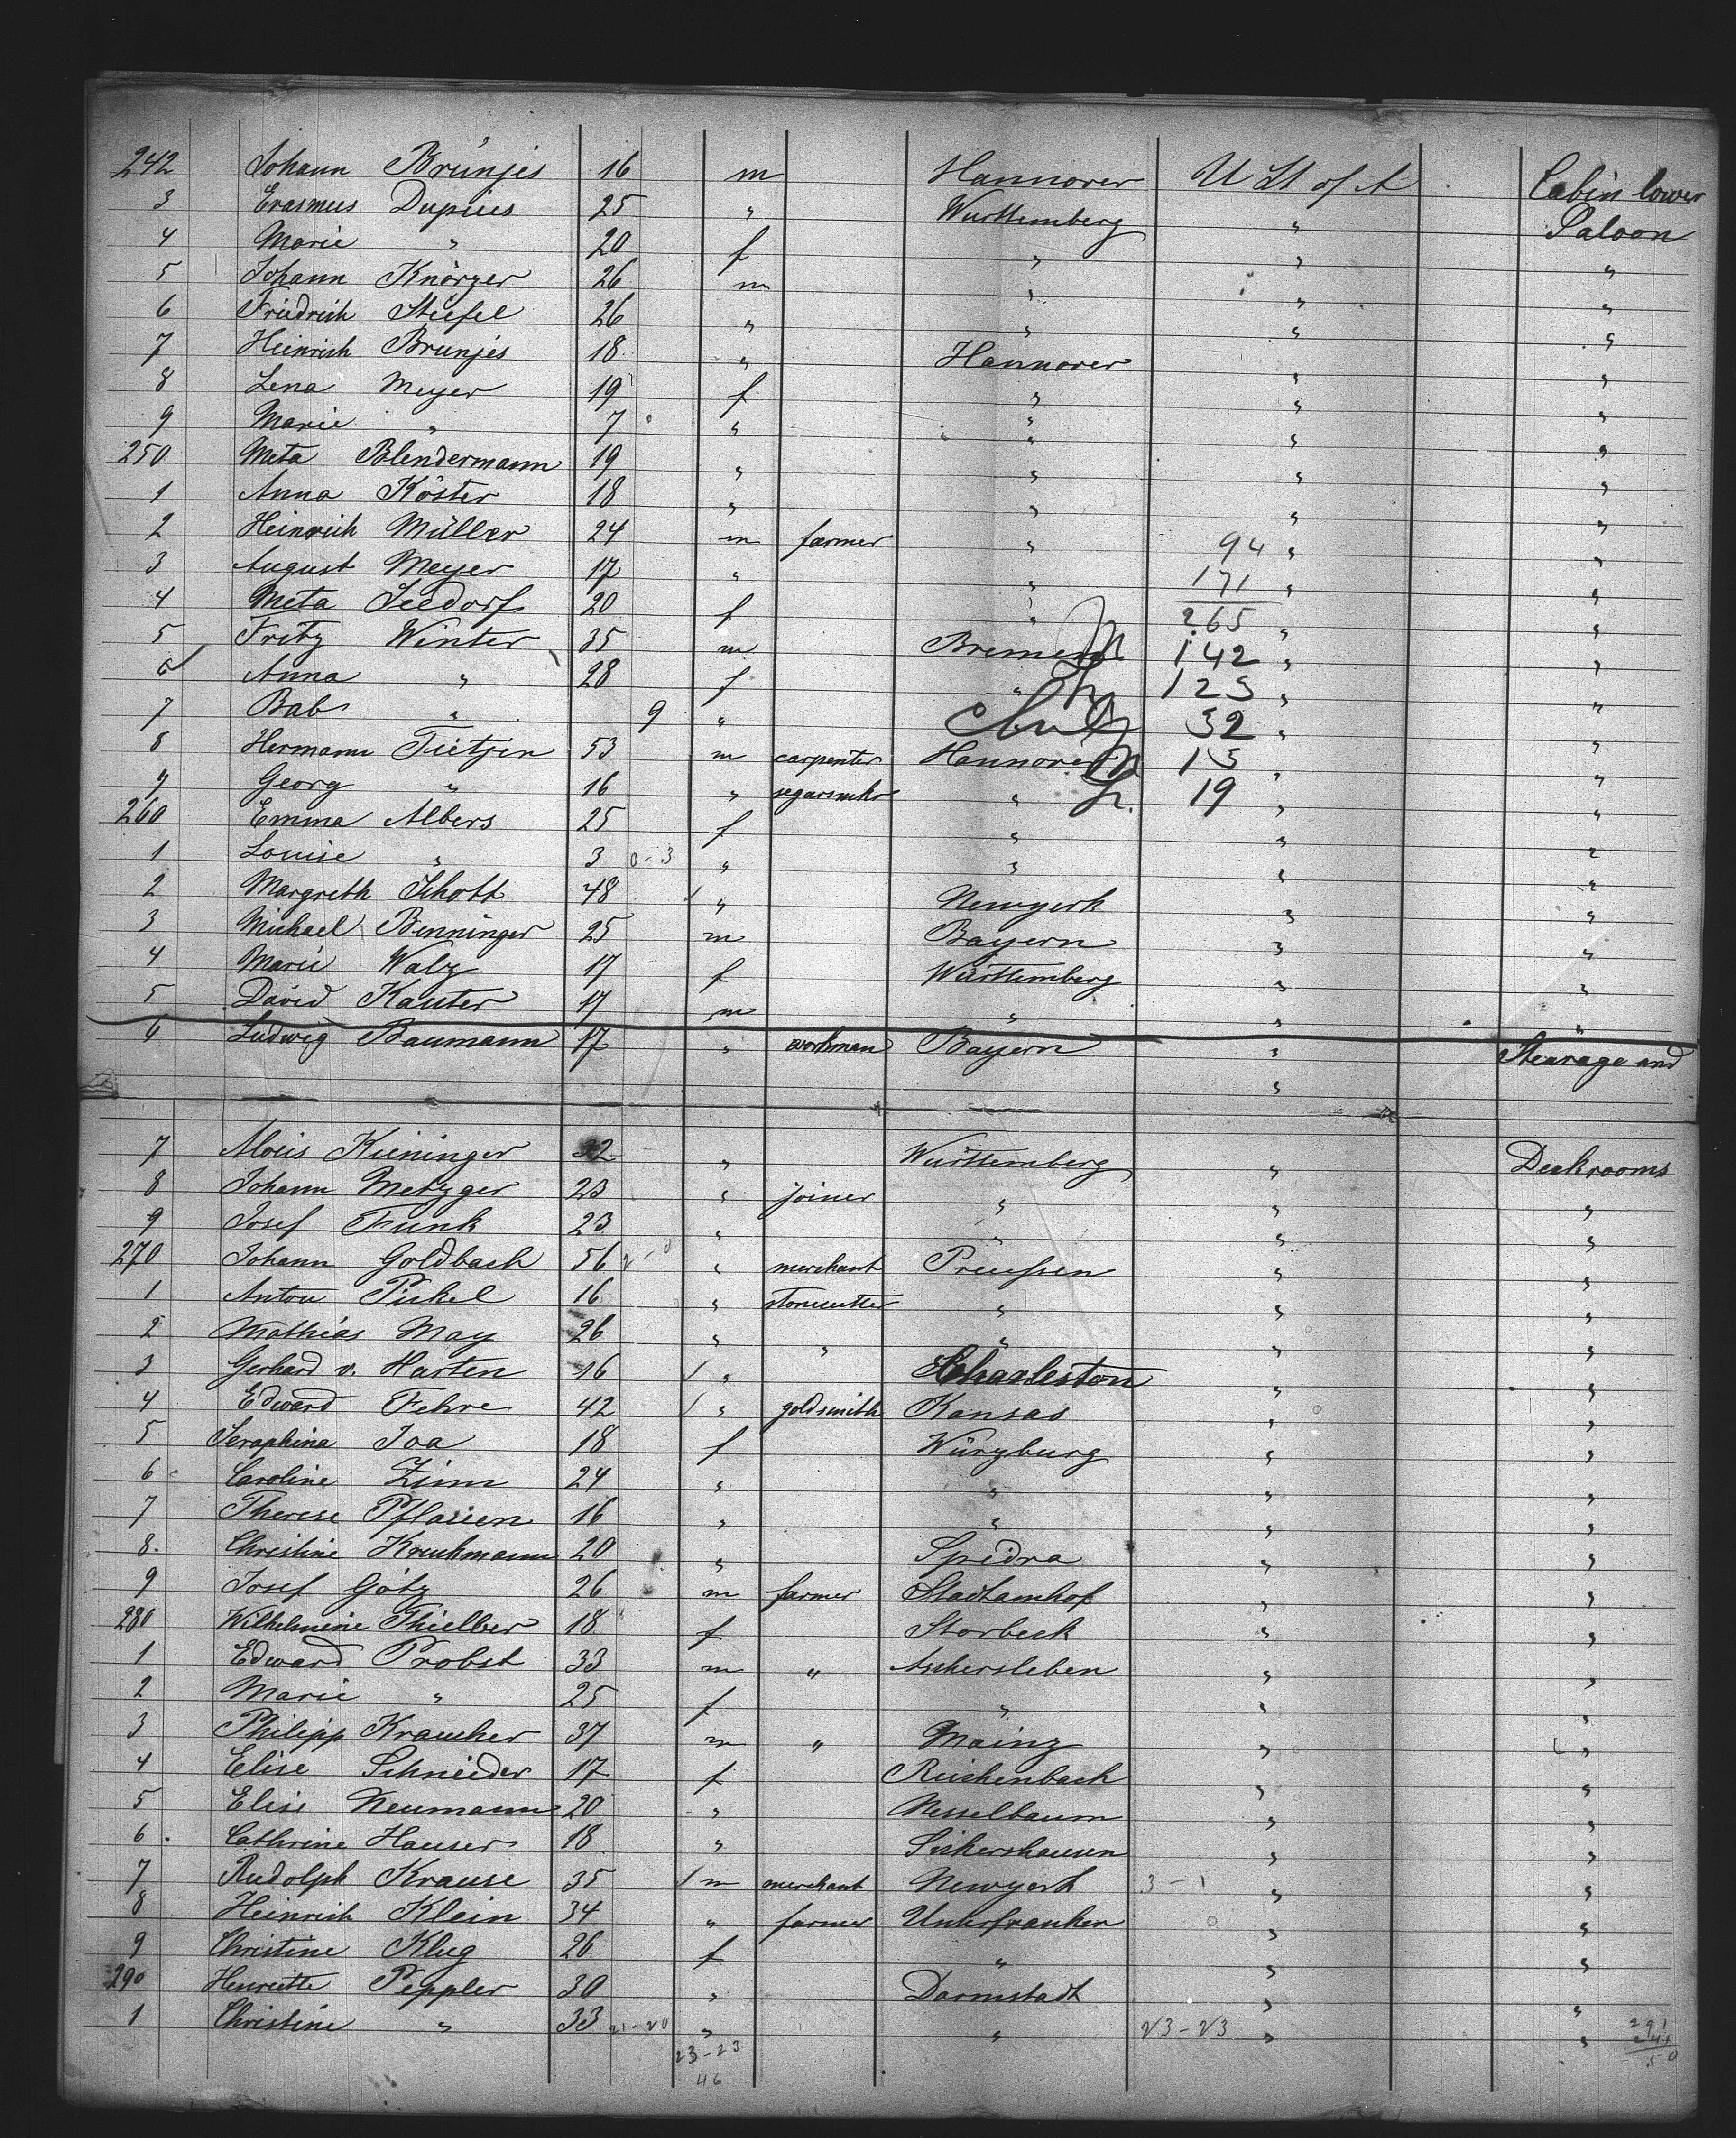 242 Johann Brünjes 16 m Hannover U St of A Cabin lower
3 Erasmus Dupius 25 " Württemberg " Saloon
4 Marie " 20 f " " "
5 Johann Knörzer 26 m " " "
6 Friedrich Stiefel 26 " " " "
7 Heinrich Brunjes 18 " Hannover " "
8 Lena Meyer 19 f " " "
9 Marie " 7 " " " "
250 Meta Blendermann 19 " " " "
1 Anna Köster 18 " " " "
2 Heinrich Müller 24 m farmer " 94 " "
3 August Meyer 17 " " 171 " "
4 Meta Seedorf 20 f " 265 " "
5 Fritz Winter 35 m Bremen 142 " "
6 Anna " 28 f " 123 " "
7 Bab " 9 " 32 " "
8 Hermann Tietjen 53 m carpenter Hannover 13 " "
9 Georg " 16 " segarmkr " 19 " "
260 Emma Albers 25 f " " "
1 Louise " 3 0-3 " " " "
2 Margreth Schott 48 " Newyork " "
3 Michael Benninger 25 m Bayern " "
4 Marie Walz 17 f Württemberg " "
5 David Kauter 17 m " " "
6 Ludwig Baumann 17 " workman Bayern " Stearage and
"
7 Alois Kieninger 32 " Württemberg " Deckrooms
8 Johann Metzger 23 " joiner " " "
9 Josef Funk 23 " " " "
270 Johann Goldbach 56 " merchant Preußen " "
1 Anton Pickel 16 " stonecutter " " "
2 Mathias May 26 " " " " "
3 Gerhard v. Harten 16 " Charleston " "
4 Edward Fehre 42 " goldsmith Kansas " "
5 Seraphina Joa 18 f Würzburg " "
6 Caroline Zinn 24 " " " "
7 Therese Pflaum 16 " " " "
8 Christine Kruckmann 20 " Spidra " "
9 Josef Götz 26 m farmer Stadtamhof " "
280 Wilhelmine Thielber 18 f Storbeck " "
1 Edward Probst 33 m " Aschersleben " "
2 Marie " 25 f " " "
3 Philipp Kraucher 37 m " Mainz " "
4 Elise Schneider 17 f Reichenbach " "
5 Elise Neumann 20 " Nesselbaum " "
6 Cathrine Hauser 18 " Sickershausen " "
7 Rudolph Krause 35 m merchant Newyork 3-1 " "
8 Heinrich Klein 34 " farmer Unterfranken " "
9 Christine Klug 26 f " " "
290 Henriette Peppler 30 " Darmstadt " "
1 Christine " 33 " " 23-23 " " 291
23-23 241
46 50